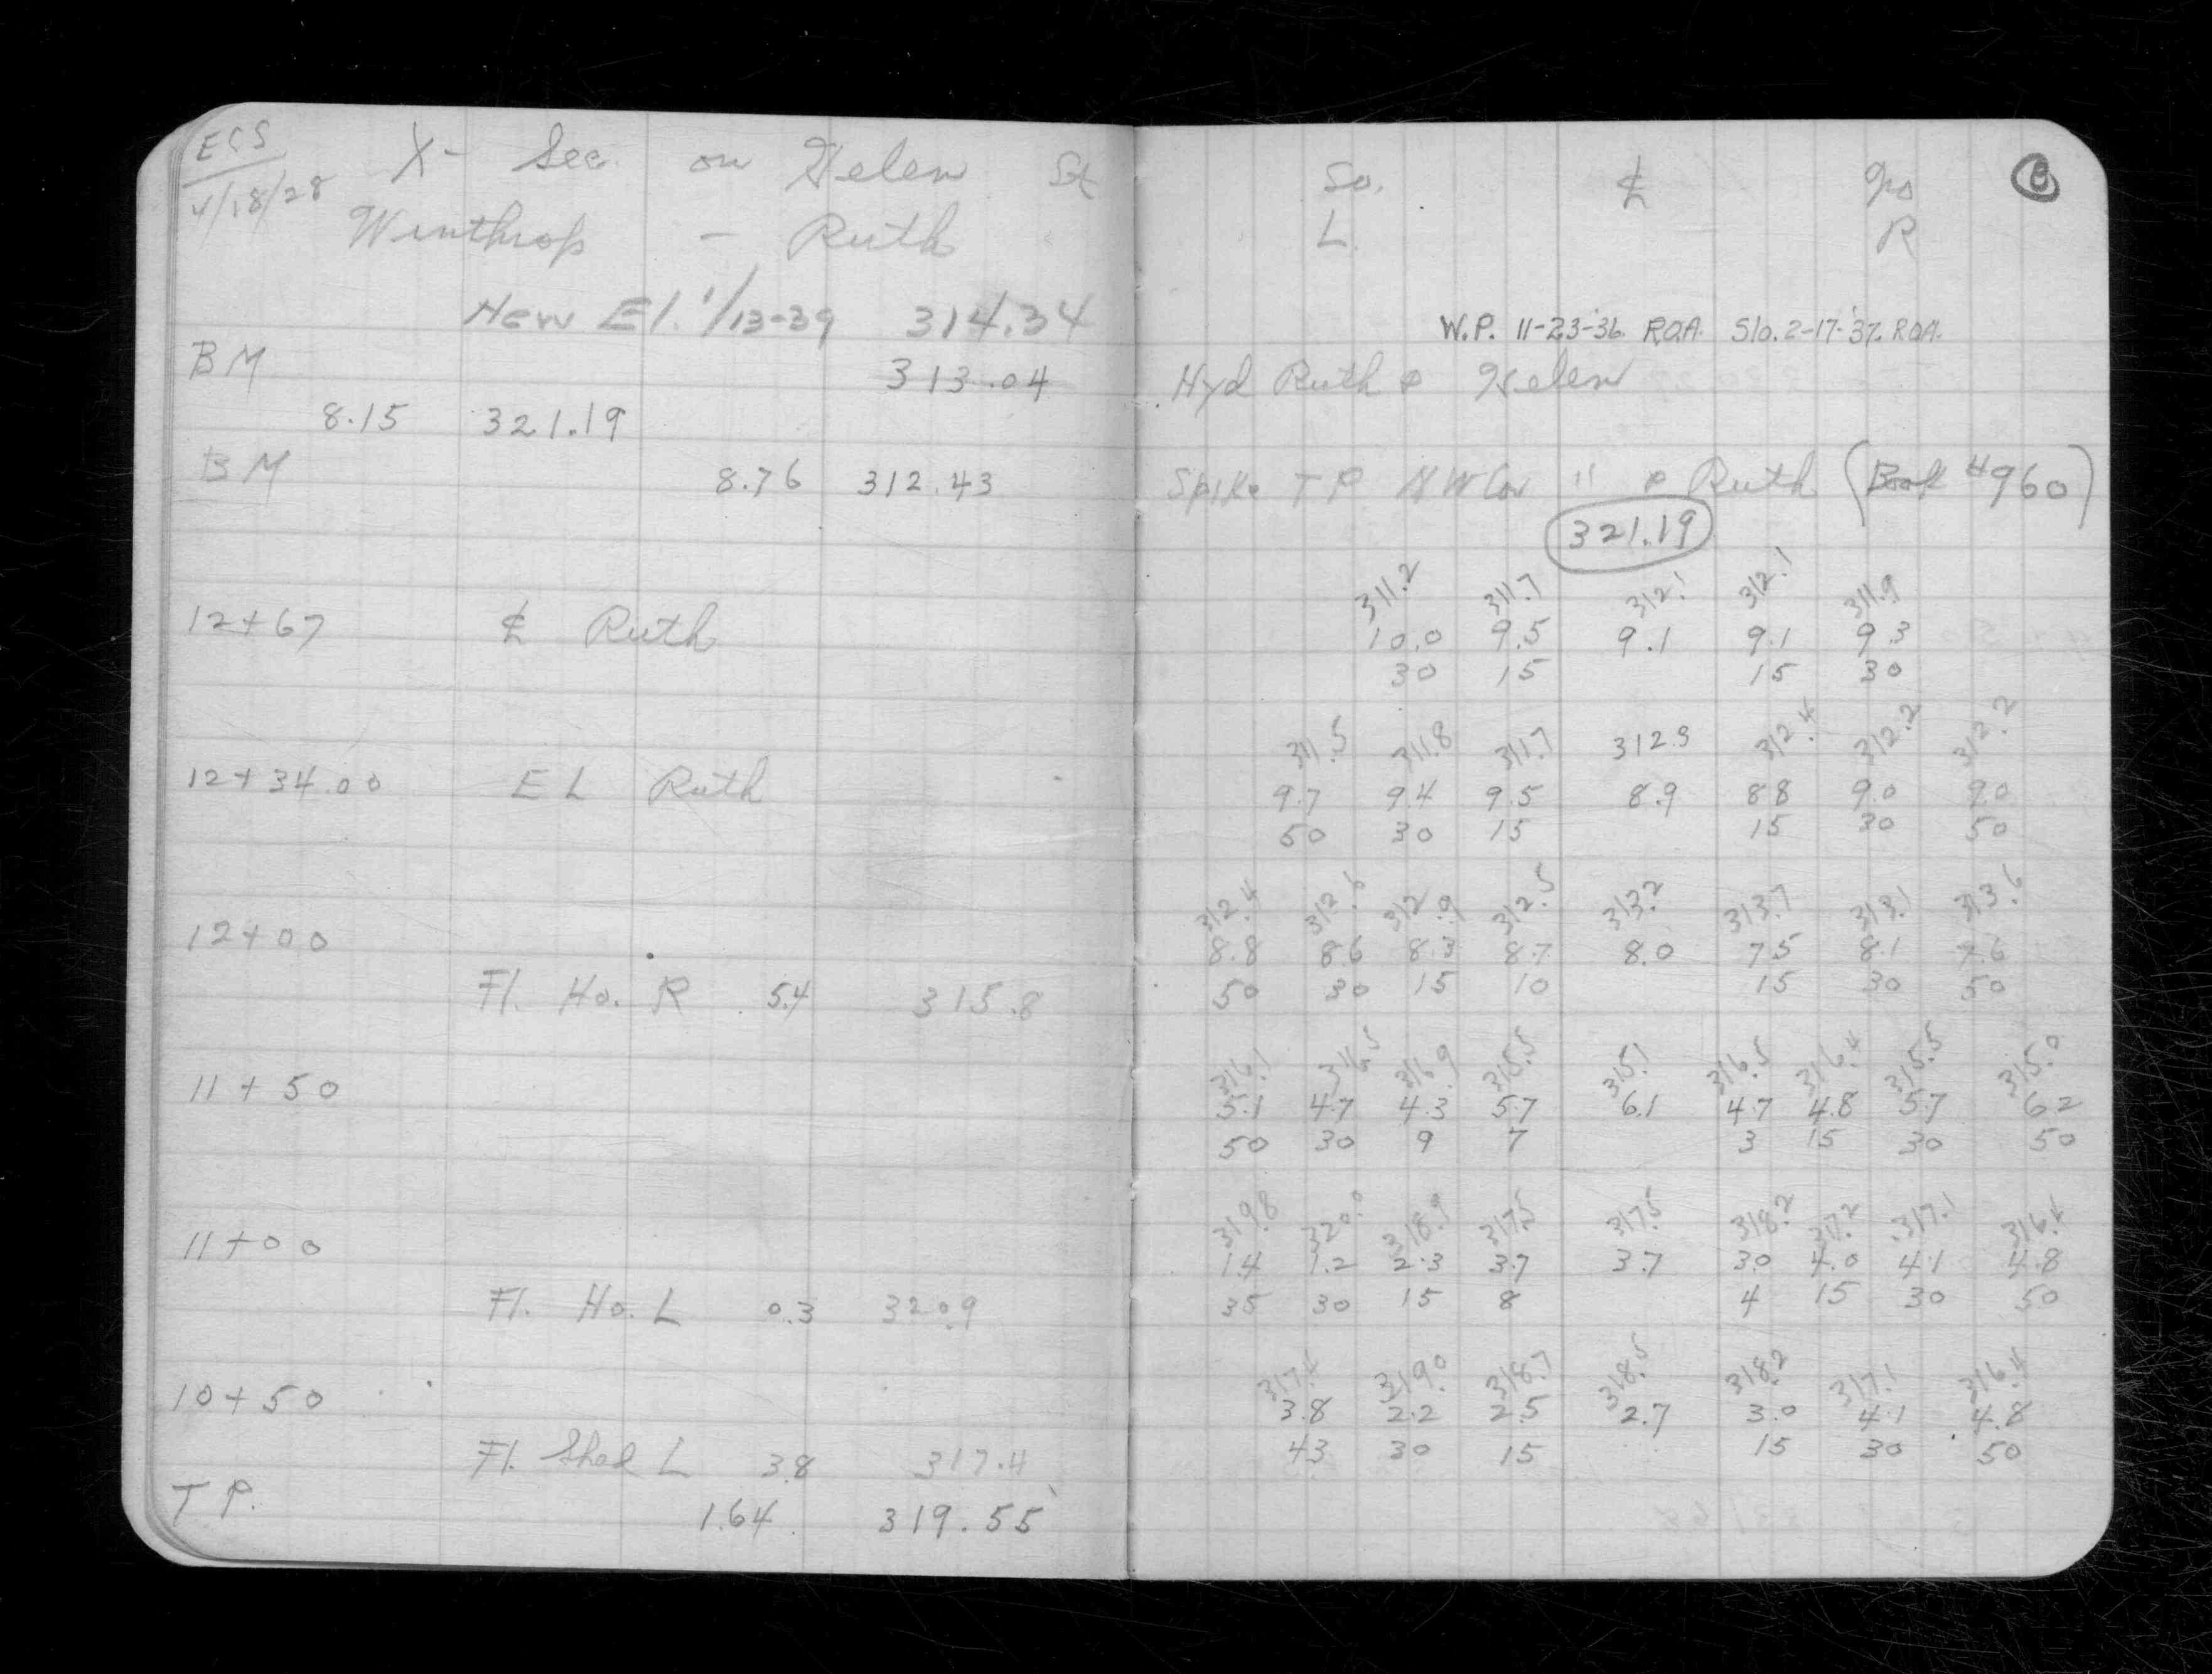 ECS
4/18/28
X- Sec. on Helen St
Winthrop - Ruth
New El. 1/13-39 314.34
BM 313.04
8.15 321.19
BM 8.76 312.43
12+67 ℄ Ruth
12+34.00 EL Ruth
12+00
Fl. Ho. R 5.4 315.8
11+50
11+00
Fl. Ho. L 0.3 320.9
10+50
Fl. Shed L 3.8 317.4
T P. 1.64 319.55
So. ℄ No 8
L. R
W.P. 11-23-'36. R.O.A. Slo. 2-17-'37. R.O.A.
Hyd Ruth & Helen
Spike T P N W Cor " & Ruth (Book #960)
321.19
311.2 311.7 312.1 312.1 311.9
10.0 9.5 9.1 9.1 9.3
30 15 15 30
311.5 311.8 311.7 312.3 312.4 312.2 312.2
9.7 9.4 9.5 8.9 8.8 9.0 9.0
50 30 15 15 30 50
312.4 312.6 312.9 312.5 313.2 313.7 313.1 313.6
8.8 8.6 8.3 8.7 8.0 7.5 8.1 7.6
50 30 15 10 15 30 50
316.1 316.5 316.9 315.5 315.1 316.5 316.4 315.5 315.0
5.1 4.7 4.3 5.7 6.1 4.7 4.8 5.7 6.2
50 30 9 7 3 15 30 50
319.8 320.0 318.9 317.5 317.5 318.2 317.2 317.1 316.4
1.4 1.2 2.3 3.7 3.7 3.0 4.0 4.1 4.8
35 30 15 8 4 15 30 50
317.4 319.0 318.7 318.5 318.2 317.1 316.4
3.8 2.2 2.5 2.7 3.0 4.1 4.8
43 30 15 15 30 50